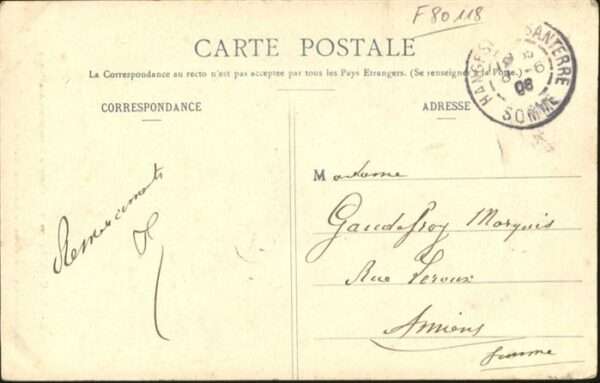 F 80 118
CARTE POSTALE
La Correspondance au recto n'est pas acceptée par tous les Pays Etrangers. (Se renseigner à la Poste.)
HANGEST SANTERRE
8 -6
06
SOMME
CORRESPONDANCE
ADRESSE
Remerciements
Madame
Gaudefroy Marquis
Rue Leroux
Amiens
Somme